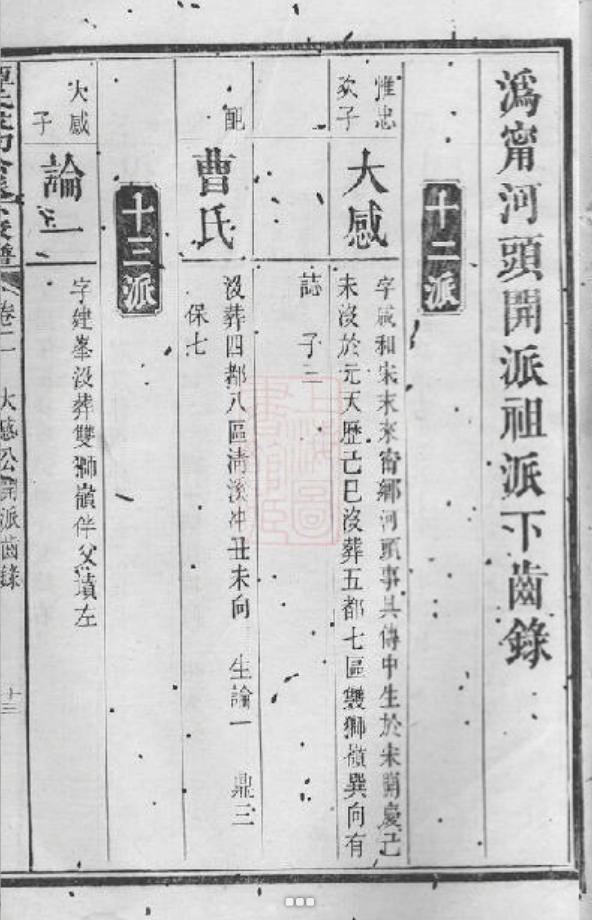 溈甯河頭開派祖派下齒錄
十二派
惟忠
次子
大感
字咸和宋末來甯鄉河頭事具傳中生於宋開慶己
未沒於元天歷己巳沒葬五都七區雙獅嶺巽向有
誌 子三
配
曹氏
沒葬四都八區清溪冲丑未向 生論一 鼎三
保七
十三派
大感
子
論一
字建峯沒葬雙獅嶺伴父墳左
卷二 大感公開派齒錄 十三